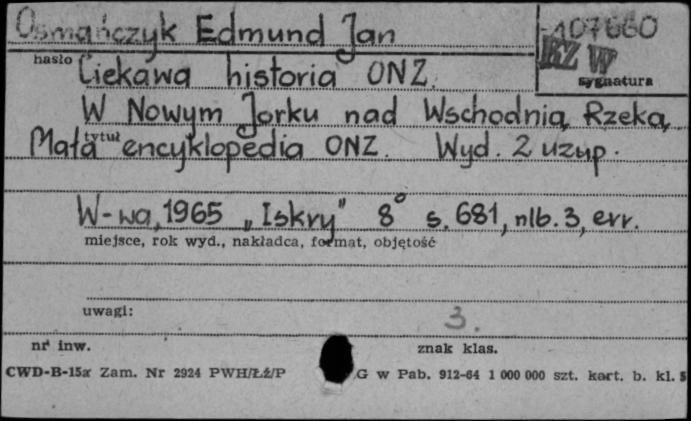 Osmańczyk Edmund Jan
107660
RZ W
sygnatura
hasło
Ciekawa historia ONZ.
W Nowym Jorku nad Wschodnią Rzeką,
tytuł
Mała encyklopedia ONZ. Wyd. 2 uzup.
W-wa, 1965 „Iskry" 8° s. 681, nlb. 3, err.
miejsce, rok wyd., nakładca, format, objętość
uwagi:
3.
nr inw. znak klas.
CWD-B-15a Zam. Nr 2924 PWH/Łź/P G w Pab. 912-64 1 000 000 szt. kart. b. kl. 5